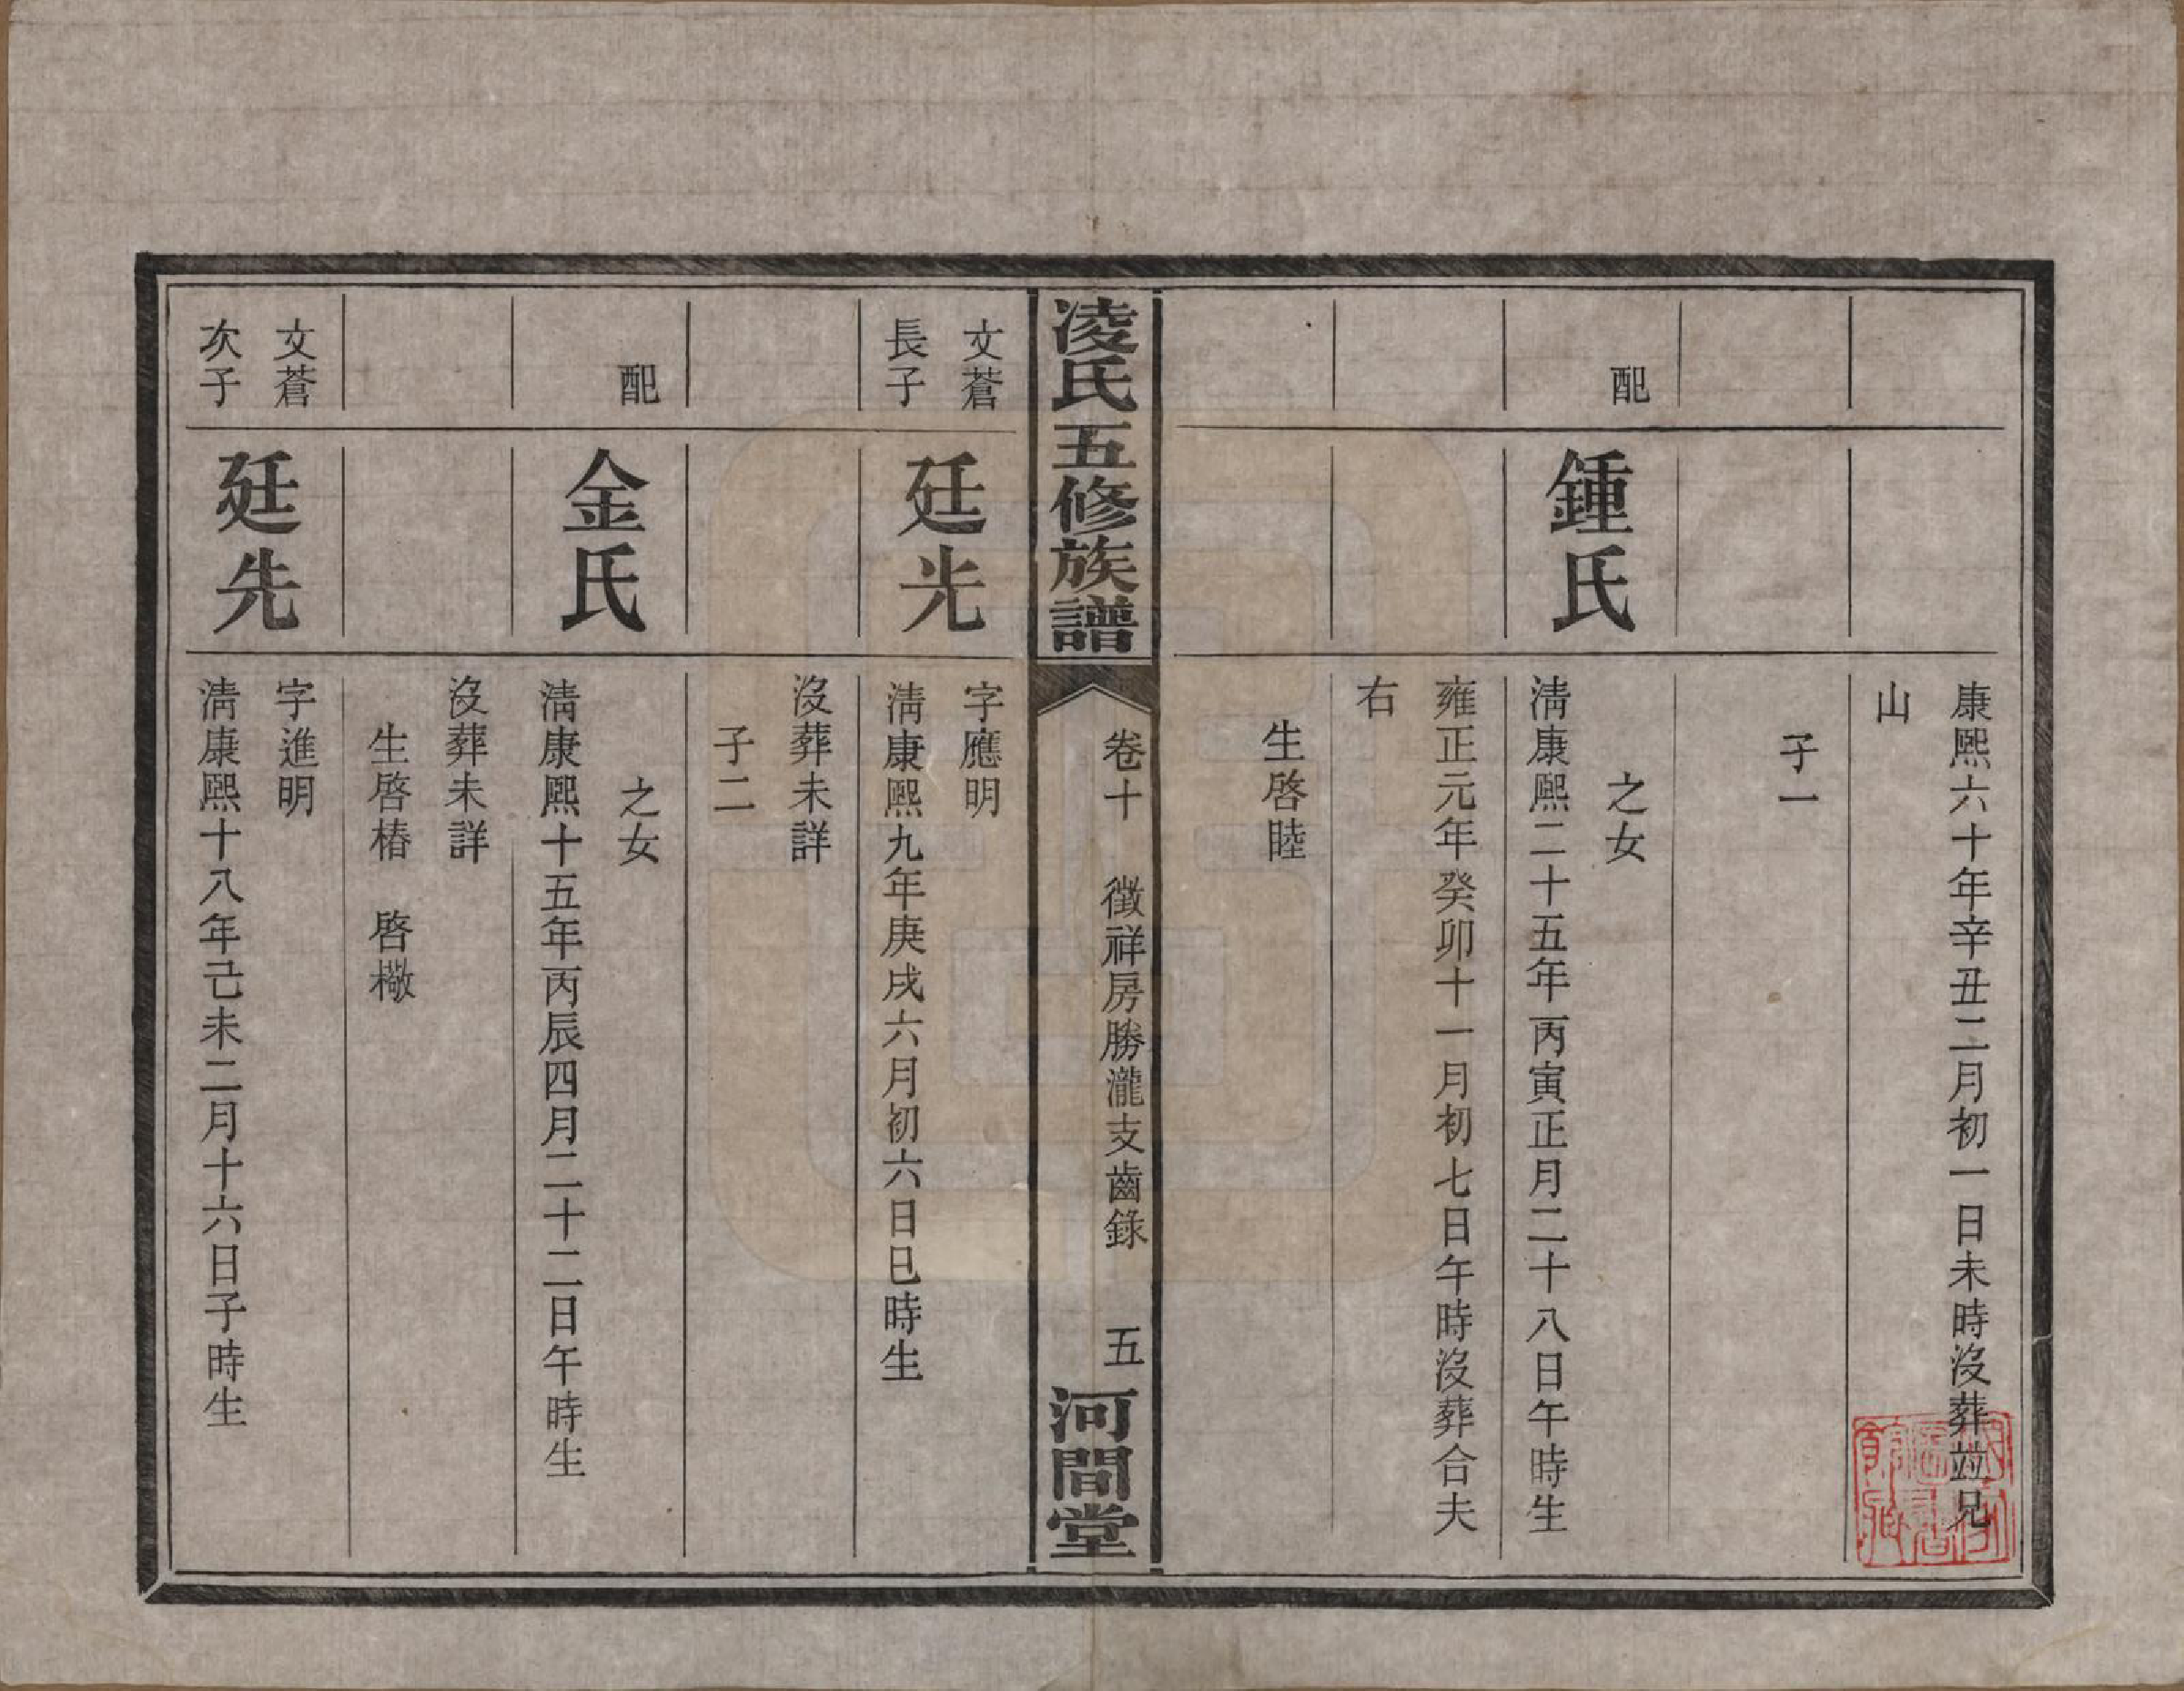 康熙六十年辛丑二月初一日未時沒葬並兄
山
子一
配
鍾氏
之女
清康熙二十五年丙寅正月二十八日午時生
雍正元年癸卯十一月初七日午時沒葬合夫
右
生啓睦
凌氏五修族譜
卷十　徵祥房勝瀧支齒錄　五
河間堂
文蒼
長子
廷光
字應明
清康熙九年庚戌六月初六日巳時生
沒葬未詳
子二
配
金氏
之女
清康熙十五年丙辰四月二十二日午時生
沒葬未詳
生啓椿　啓橄
文蒼
次子
廷先
字進明
清康熙十八年己未二月十六日子時生